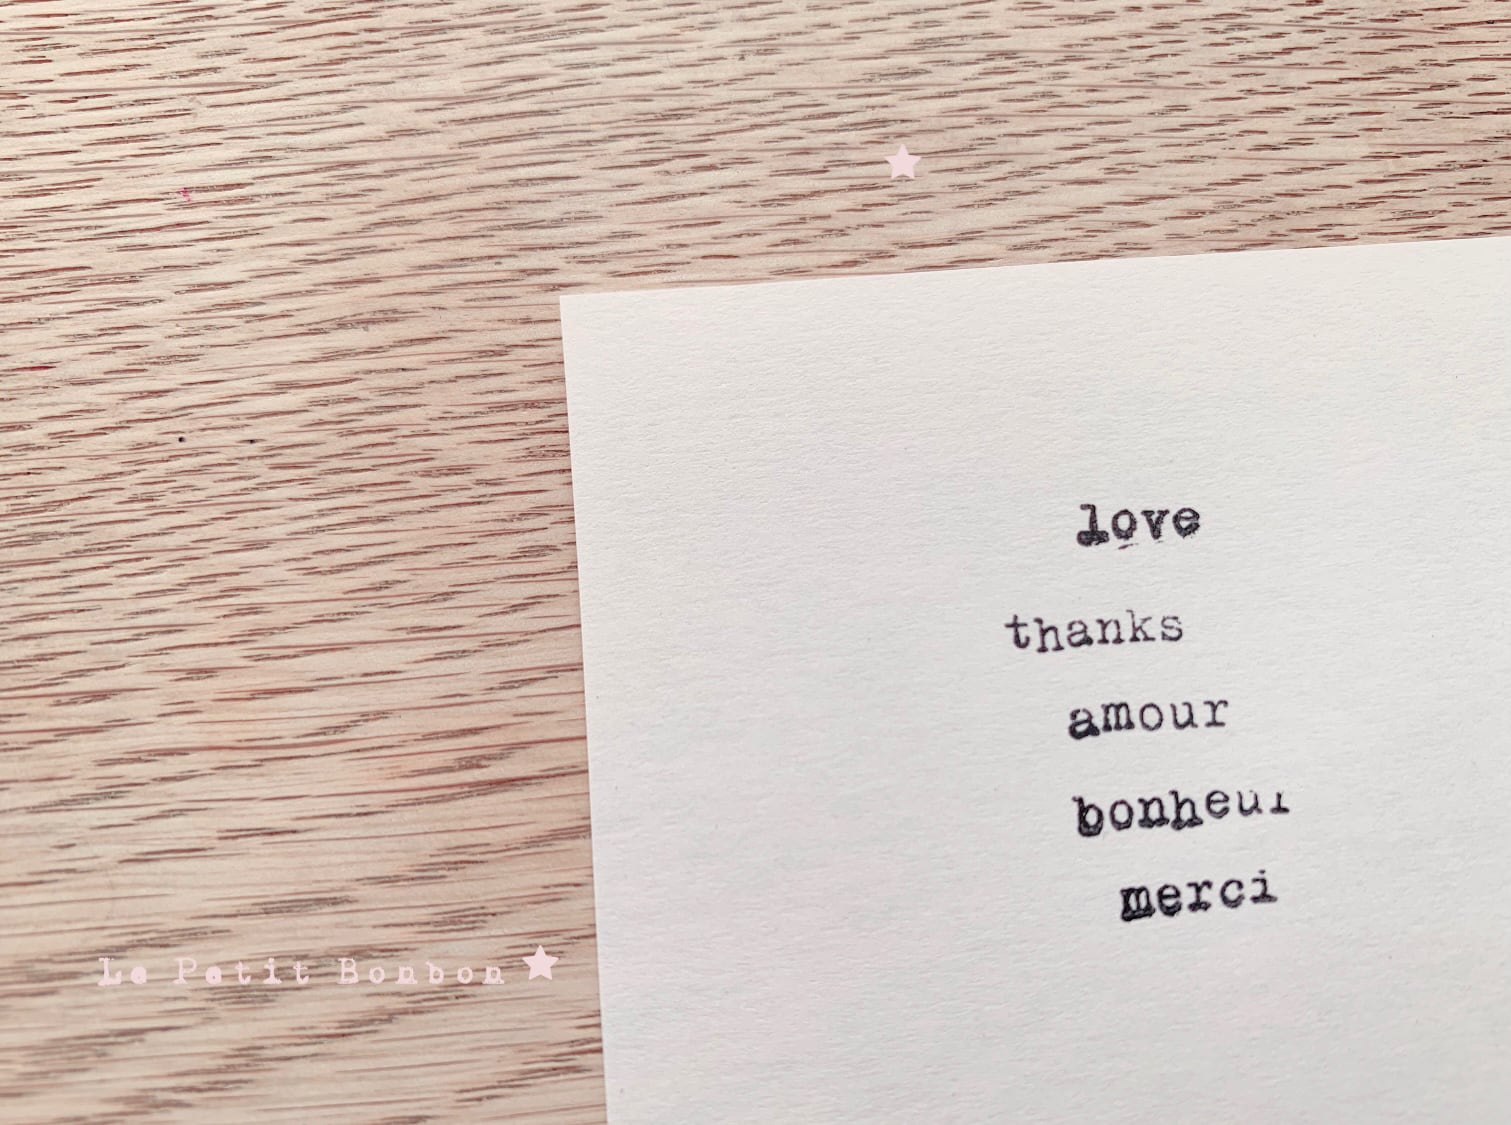 love
thanks
amour
bonheur
merci
Le Petit Bonbon